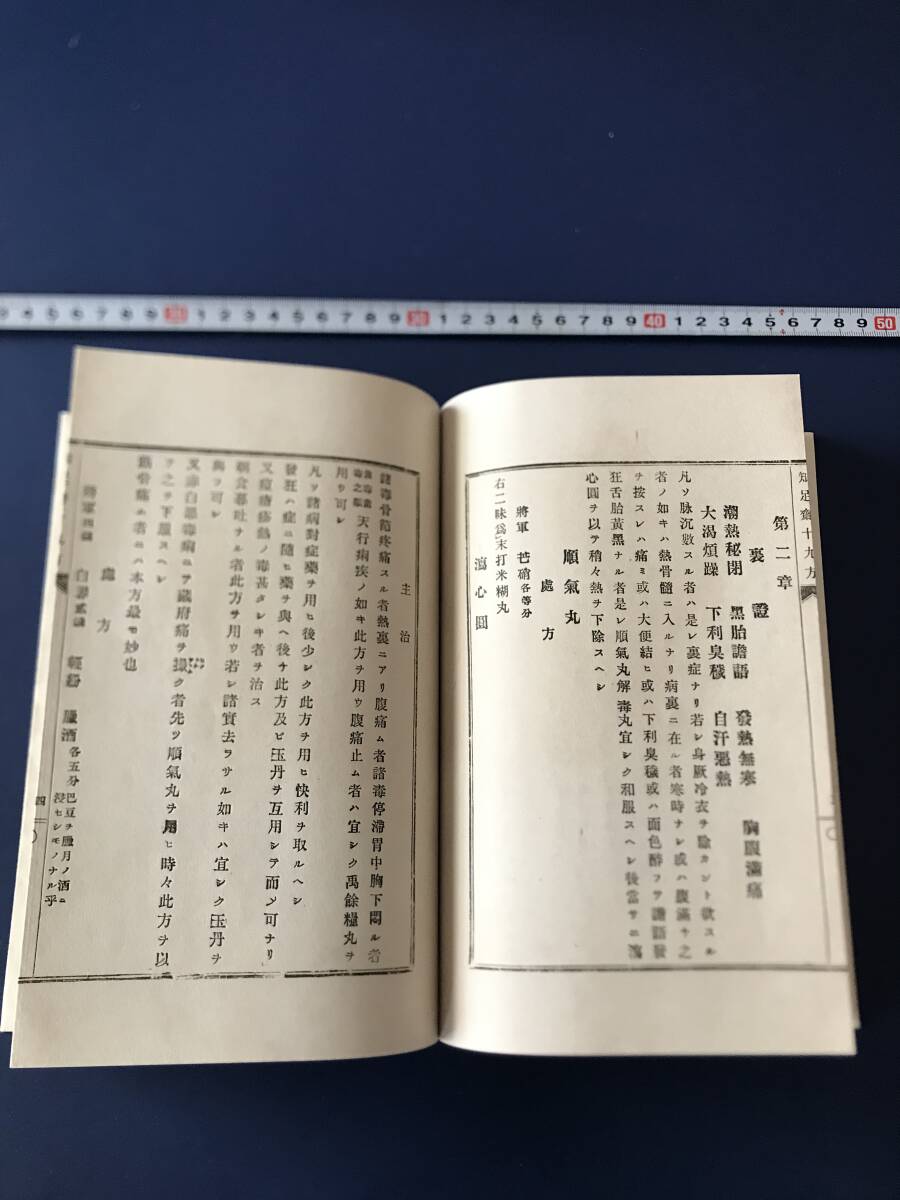 3 4 5 6 7 8 9 20 1 2 3 4 5 6 7 8 9 30 1 2 3 4 5 6 7 8 9 40 1 2 3 4 5 6 7 8 9 50
知足齋十九方
第二章
裏證
潮熱秘閉 黑胎譫語 發熱無寒 胸腹滿痛
大渴煩躁 下利臭穢 自汗惡熱
凡ソ脉沉數スル者ハ是レ裏症ナリ若シ身厥冷衣ヲ除カント欲スル
者ノ如キハ熱骨髓ニ入ルナリ病裏ニ在ル者寒時ナシ或ハ腹滿キ之
ヲ按スレハ痛ミ或ハ大便結ヒ或ハ下利臭穢或ハ面色醉フテ譫語發
狂舌胎黃黑ナル者是レ順氣丸解毒丸宜シク和服スヘシ後當サニ瀉
心圓ヲ以テ稍々熱ヲ下除スヘシ
順氣丸
處方
將軍 芒硝各等分
右二味爲末打米糊丸
瀉心圓
主治
諸毒骨節疼痛スル者熱裏ニアリ腹痛ム者諸毒停滯胃中胸下悶ル者
天行痢疾ノ如キ此方ヲ用ウ腹痛止ム者ハ宜シク禹餘糧丸ヲ
用ウ可シ
凡ソ諸病對症藥ヲ用ヒ後少シク此方ヲ用ヒ快利ヲ取ルヘシ
發狂ハ症ニ隨ヒ藥ヲ與ヘ後チ此方及ヒ玉丹ヲ互用シテ而メ可ナリ
又痘瘡疹熱ノ毒甚タシキ者ヲ治ス
朝食暮吐ナル者此方ヲ用ウ若シ諸實去ラサル如キハ宜シク玉丹ヲ
與ウ可シ
又赤白惡毒病ニテ藏府痛ヲ撮ク者先ツ順氣丸ヲ用ヒ時々此方ヲ以
テ之ヲ下盪スヘシ
筋骨痛ム者ニハ本方最モ妙也
處方
將軍四錢 輕粉 臘酒各五分巴豆ヲ臘月ノ酒ニ浸セシモノナル乎
四